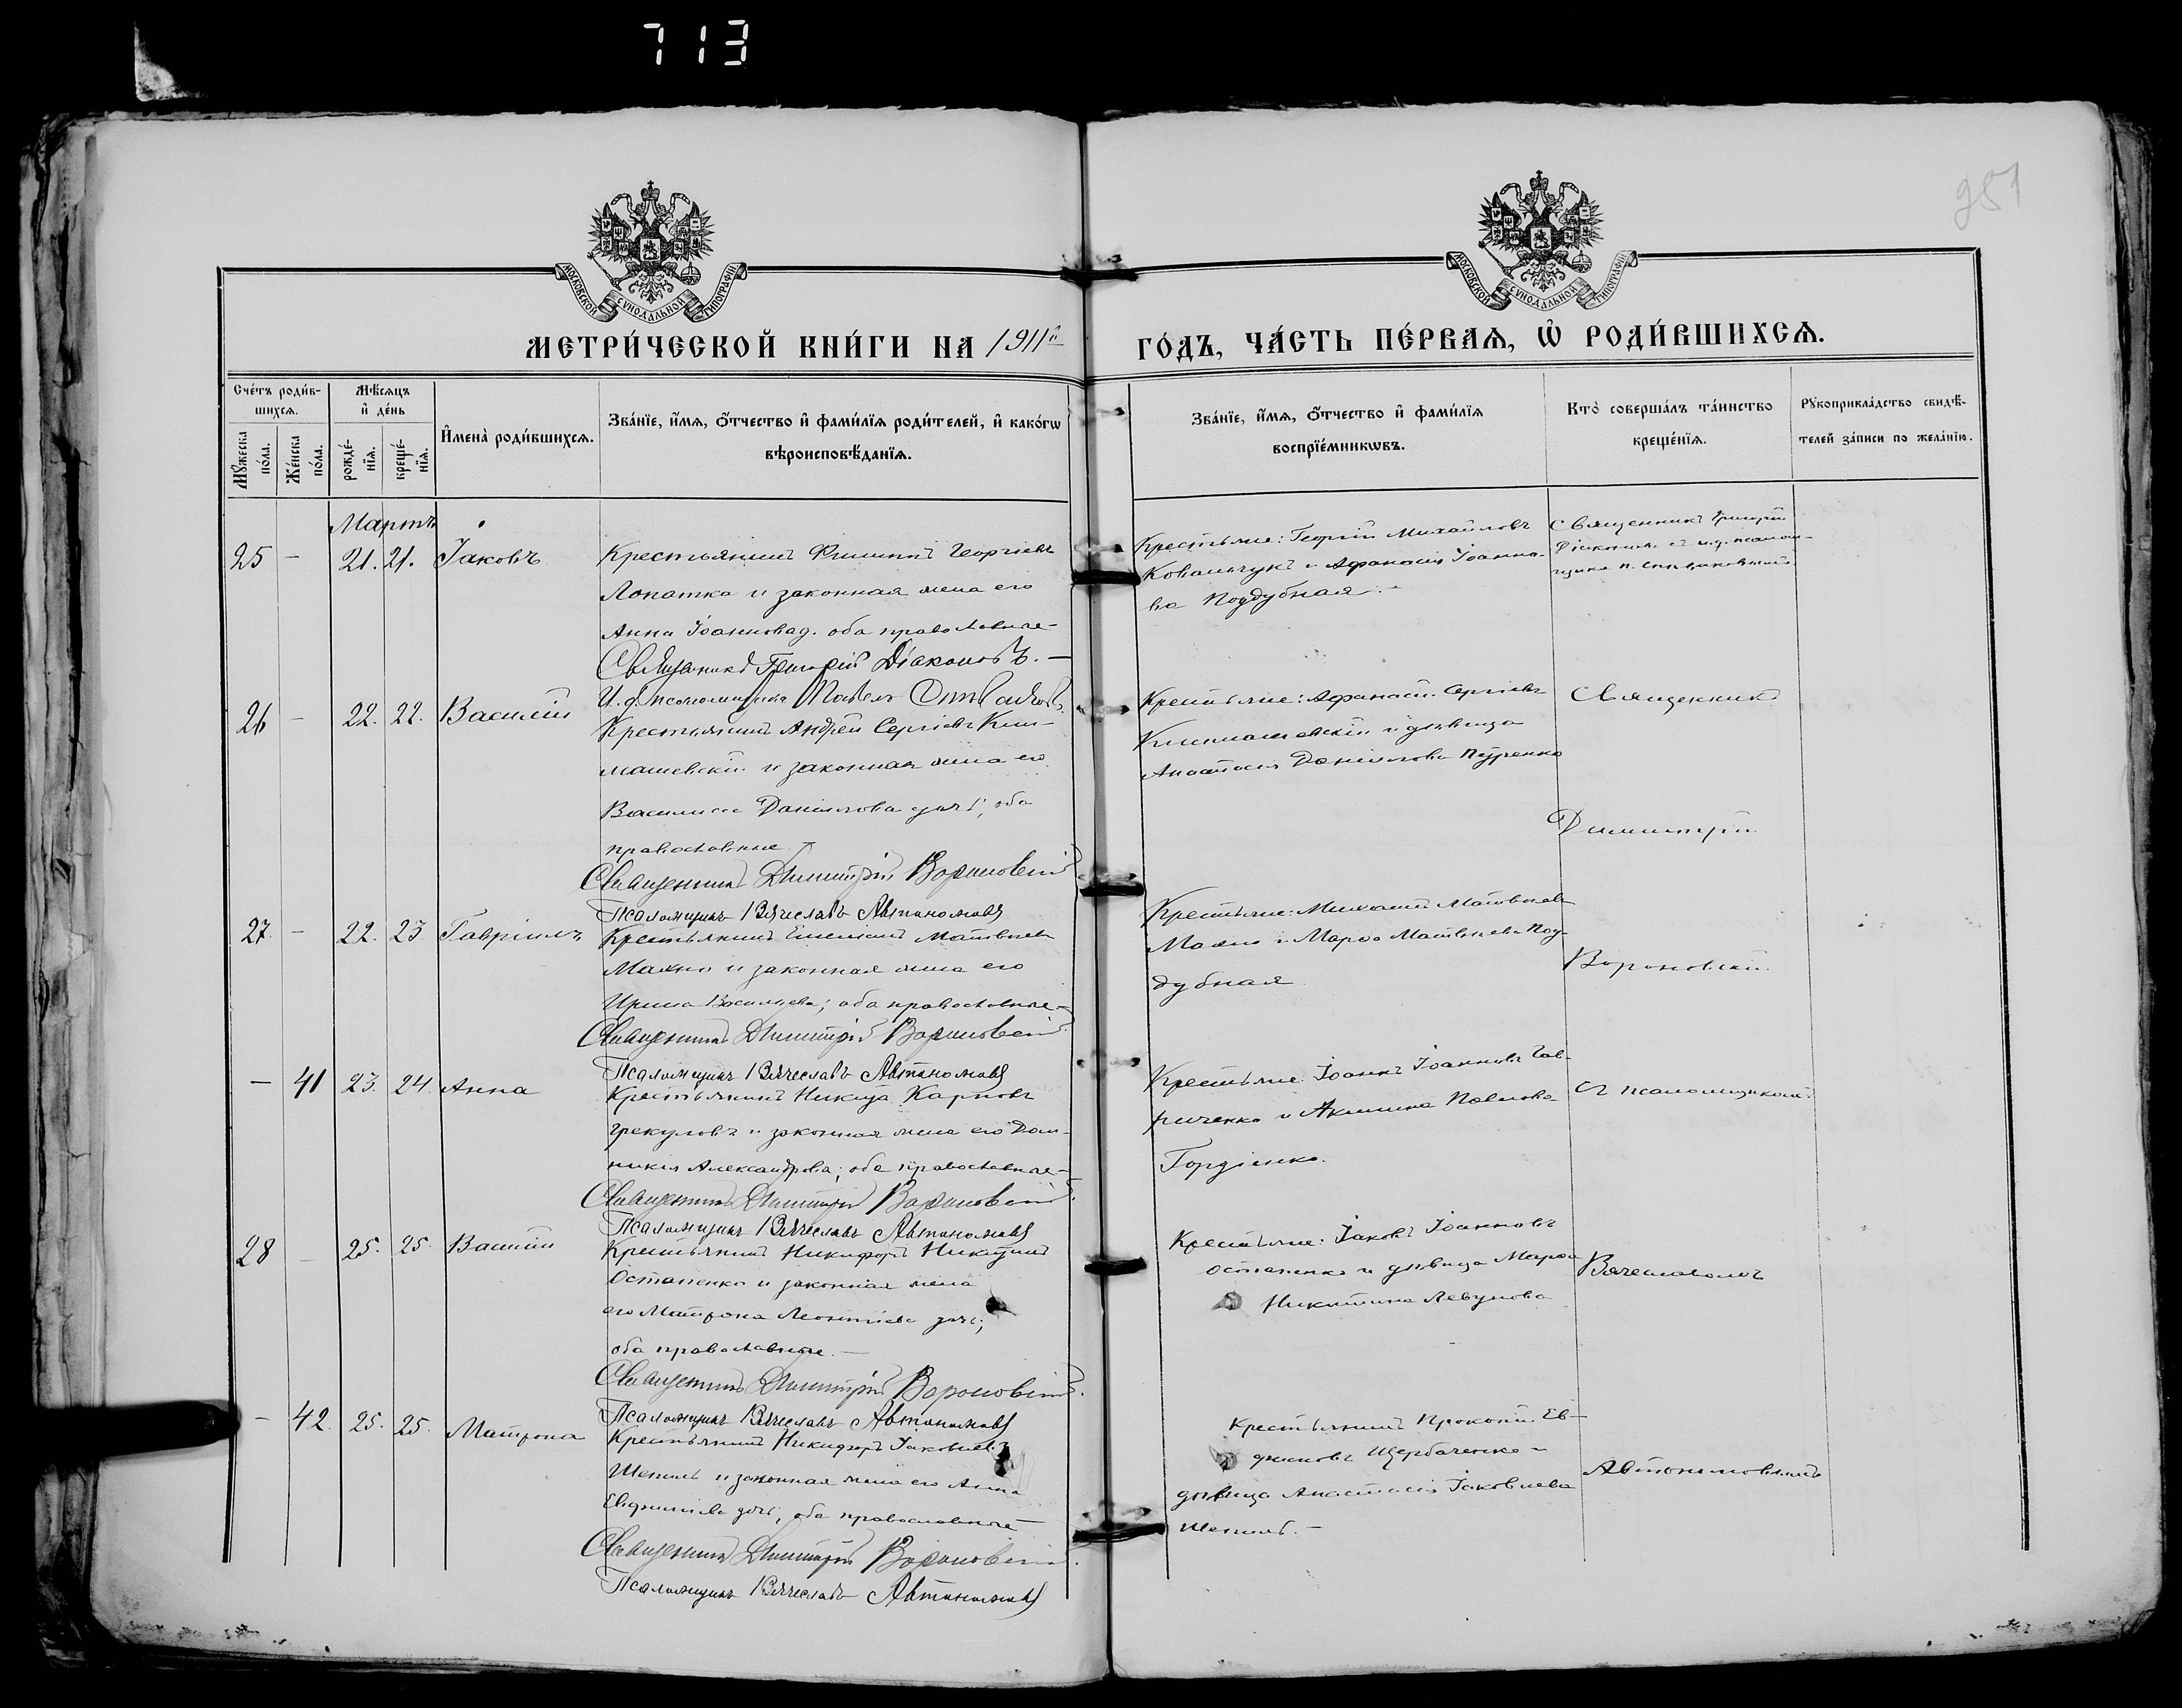 713
251
МОСКОВСКОЙ СѴНОДАЛЬНОЙ ТИПОГРАФІИ
МОСКОВСКОЙ СѴНОДАЛЬНОЙ ТИПОГРАФІИ
МЕТРИ́ЧЕСКОЙ КНИ́ГИ НА 1911й
ГО́ДЪ, ЧА́СТЬ ПЕ́РВАѦ, Ѡ҆ РОДИ́ВШИХСѦ.
Сче́тъ роди́в-
шихсѧ.
Мѣ́сѧцъ
и҆ де́нь
Мꙋ́жеска
по́ла.
Же́нска
по́ла.
рожде́-
нїѧ.
креще́-
нїѧ.
И҆мена̀ роди́вшихсѧ.
Зва́нїе, и҆́мѧ, ѻ҆́тчество и҆ фами́лїѧ роди́телей, и҆ како́гѡ
вѣроисповѣ́данїѧ.
Зва́нїе, и҆́мѧ, ѻ҆́тчество и҆ фами́лїѧ
воспрїе́мникѡвъ.
Кто̀ соверша́лъ та́инство
креще́нїѧ.
Рꙋкоприкла́дство свидѣ́-
телей за́писи по жела́нїю.
Мартъ
25 – 21. 21. Іаковъ
Крестьянинъ Филиппъ Георгіевъ
Лопатка и законная жена его
Анна Іоаннова, оба православные-
Священникъ Григорій Діаконовъ. –
И. д. псаломщика Павелъ
Крестьяне: Георгій Михайловъ
Ковальчукъ и Афанасія Іоанно-
ва Поддубная. –
Священникъ Григорій
Діаконовъ съ и. д. псалом-
щика П.
26 – 22. 22. Василій
Крестьянинъ Андрей Сергіевъ Кли-
машевскій и законная жена его
Василиса Даніилова дочь; оба
православные.
Священникъ Димитрій Вороновскій
Псаломщикъ Вячеславъ Автономовъ
Крестьяне: Афанасій Сергіевъ
Климашевскій и дѣвица
Анастасія Даніилова
Священникъ
Димитрій
27. – 22. 23. Гавріилъ
Крестьянинъ Емеліанъ Матвѣевъ
Махно и законная жена его
Ирина Васильева; оба православные –
Священникъ Димитрій Вороновскій
Псаломщикъ Вячеславъ Автономовъ
Крестьяне: Михаилъ Матвѣевъ
Махно и Марѳа Матвѣева Под-
дубная
Вороновскій
– 41 23. 24 Анна
Крестьянинъ Никита Карповъ
Грекуловъ и законная жена его Дом-
никія Александрова; оба православные –
Священникъ Димитрій Вороновскій.
Псаломщикъ Вячеславъ Автономовъ
Крестьяне: Іоаннъ Іоанновъ Гав-
риченко и Акилина Павлова
Гордіенко.
съ псаломщикомъ
28 – 25. 25. Василій
Крестьянинъ Никифоръ Никитинъ
Остапенко и законная жена
его Матрона Леонтіева дочь;
оба православные. –
Священникъ Димитрій Вороновскій.
Псаломщикъ Вячеславъ Автономовъ
Крестьяне: Іаковъ Іоанновъ
Остапенко и дѣвица Марѳа
Никитина
Вячеславомъ
– 42. 25. 25. Матрона
Крестьянинъ Никифоръ Іаковлевъ
Шепиль и законная жена его Анна
Евфиміева дочь, оба православные –
Священникъ Димитрій Вороновскій.
Псаломщикъ Вячеславъ Автономовъ
Крестьянинъ Прокопій Ев-
фимовъ Щербаченко и
дѣвица Анастасія Іаковлева
Шепиль. –
Автономовымъ